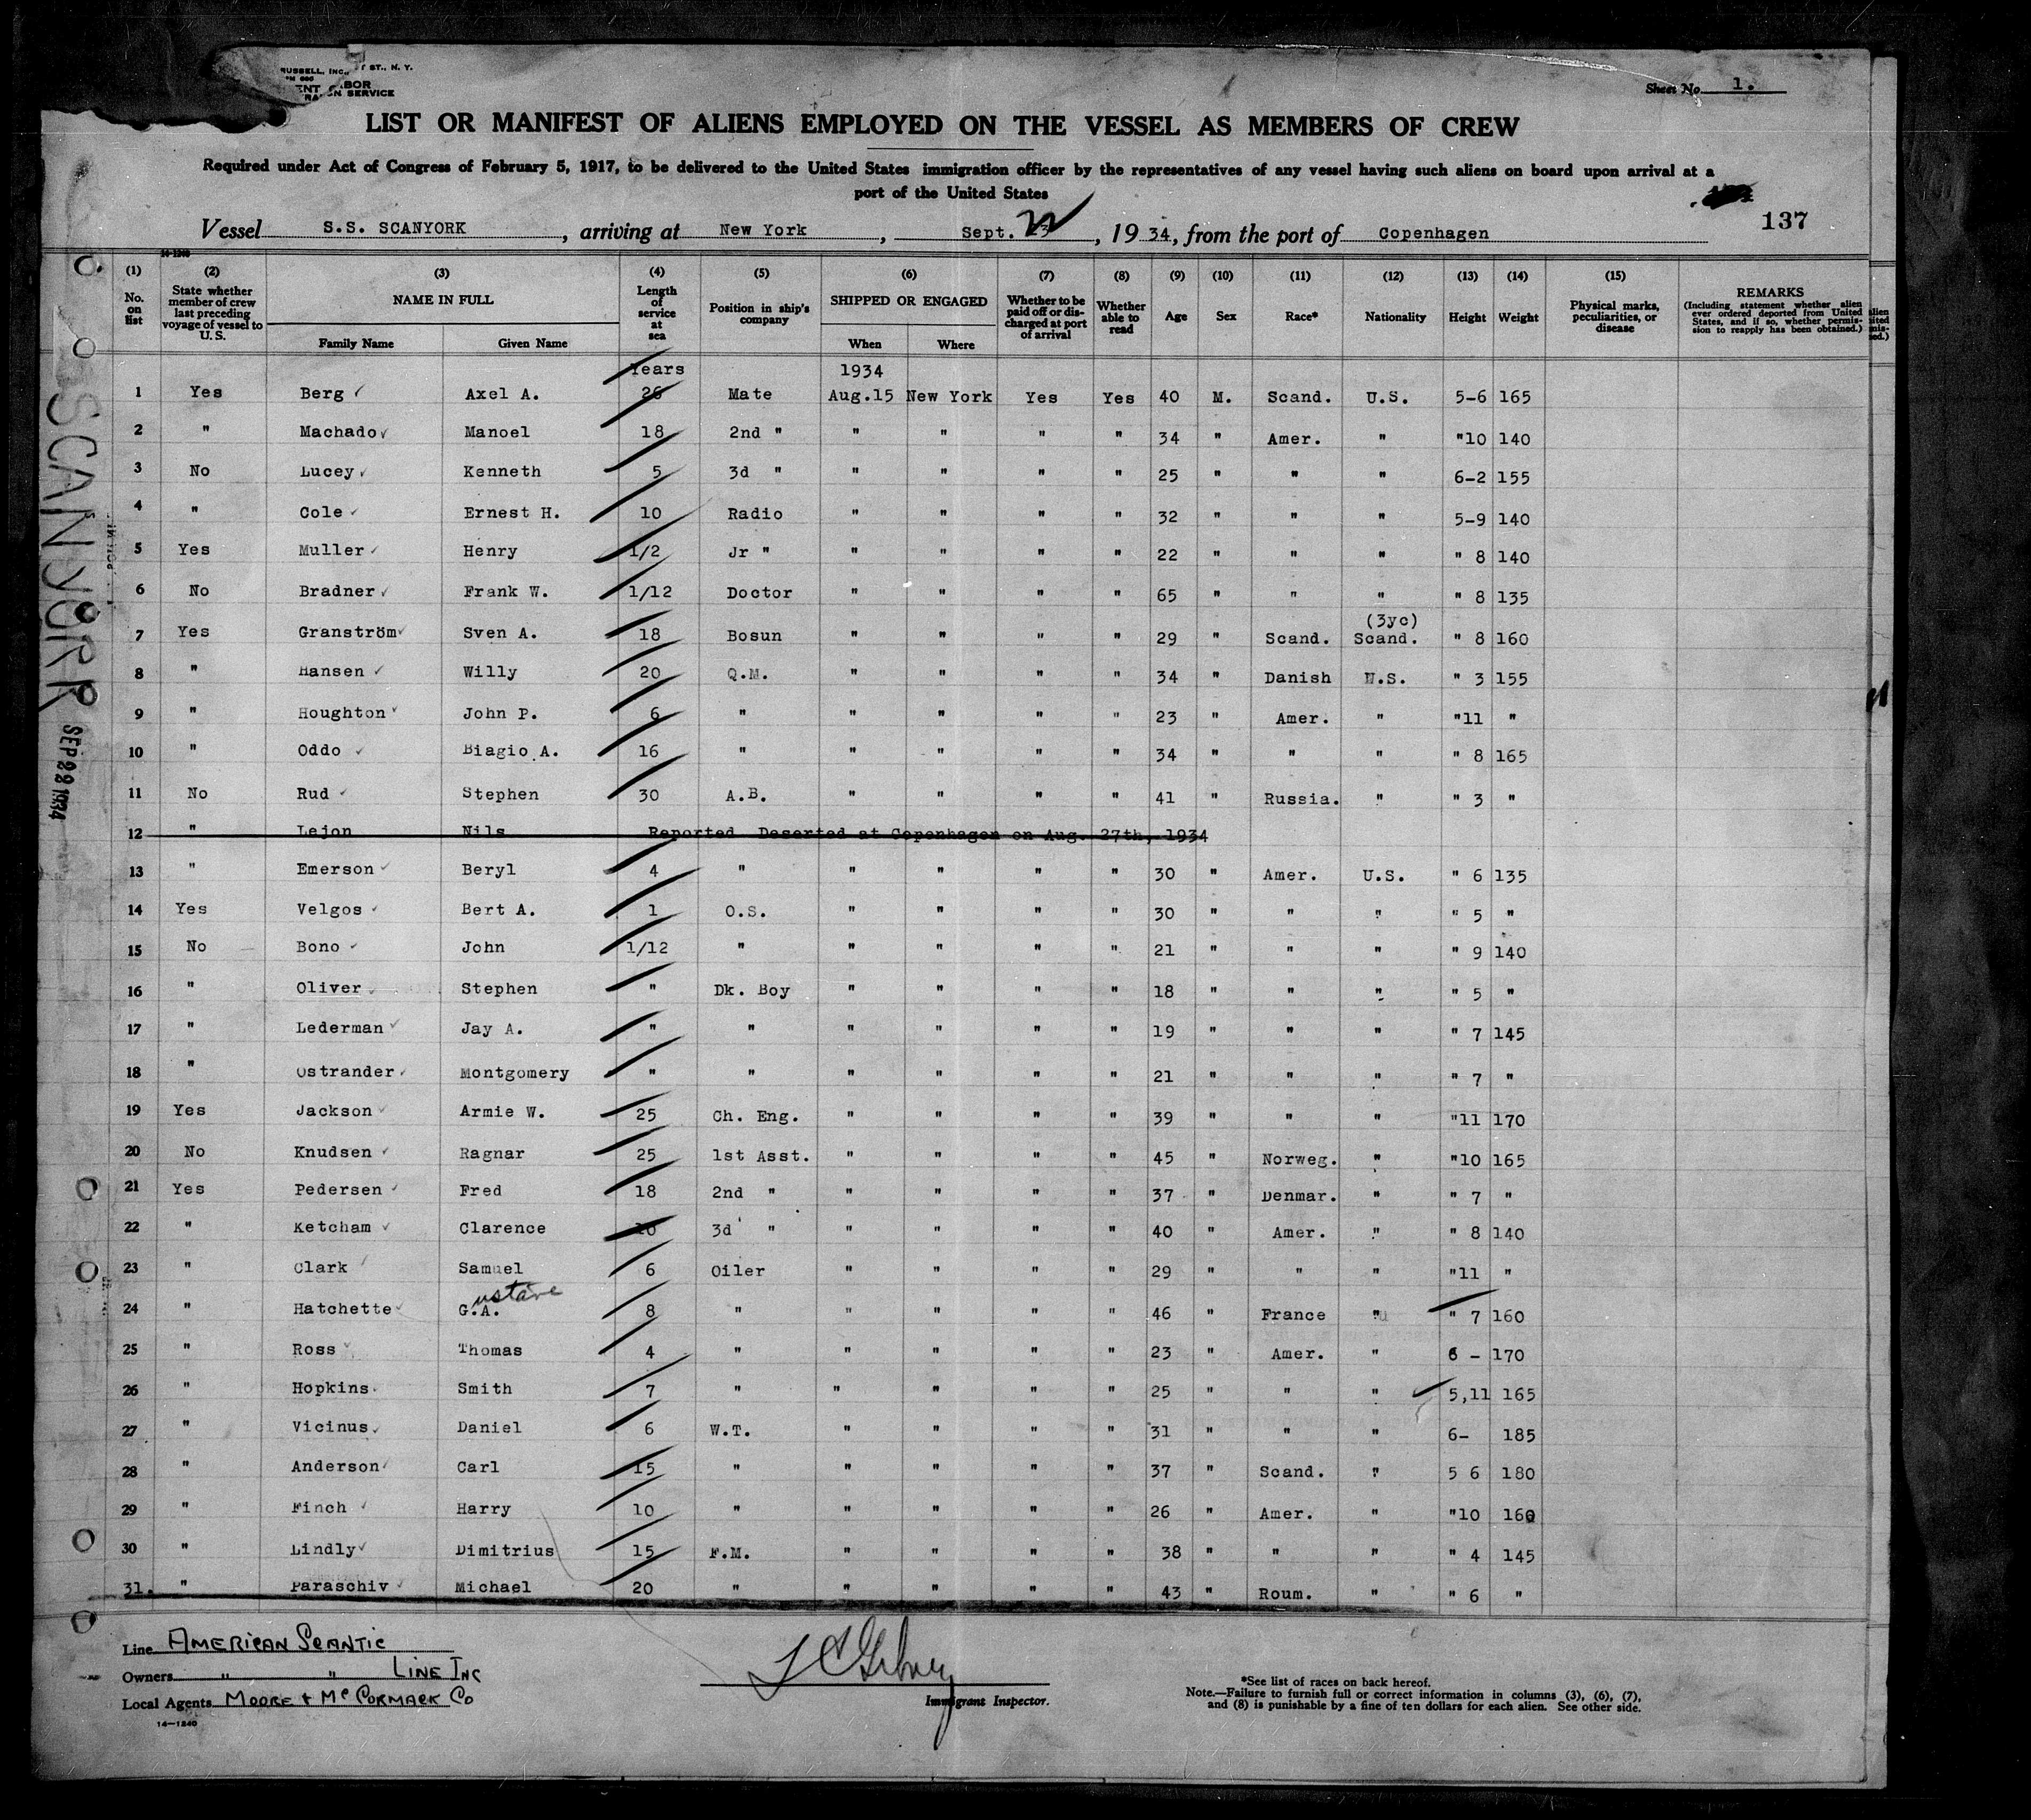 RUSSELL, INC., ST., N. Y.
SERVICE
Sheet No. 1.
LIST OR MANIFEST OF ALIENS EMPLOYED ON THE VESSEL AS MEMBERS OF CREW
Required under Act of Congress of February 5, 1917, to be delivered to the United States immigration officer by the representatives of any vessel having such aliens on board upon arrival at a
port of the United States
137
Vessel S.S. SCANYORK, arriving at New York, Sept. 22, 1934, from the port of Copenhagen
14-1240
(1) (2) (3) (4) (5) (6) (7) (8) (9) (10) (11) (12) (13) (14) (15)
No. on list State whether member of crew last preceding voyage of vessel to U. S. NAME IN FULL Family Name Given Name Length of service at sea Position in ship's company SHIPPED OR ENGAGED When Where Whether to be paid off or discharged at port of arrival Whether able to read Age Sex Race* Nationality Height Weight Physical marks, peculiarities, or disease REMARKS (Including statement whether alien ever ordered deported from United States, and if so, whether permission to reapply has been obtained.)
Years 1934
1 Yes Berg Axel A. 26 Mate Aug.15 New York Yes Yes 40 M. Scand. U.S. 5-6 165
2 " Machado Manoel 18 2nd " " " " " 34 " Amer. " "10 140
3 No Lucey Kenneth 5 3d " " " " " 25 " " " 6-2 155
4 " Cole Ernest H. 10 Radio " " " " 32 " " " 5-9 140
5 Yes Muller Henry 1/2 Jr " " " " " 22 " " " " 8 140
6 No Bradner Frank W. 1/12 Doctor " " " " 65 " " " " 8 135
7 Yes Granström Sven A. 18 Bosun " " " " 29 " Scand. (3yc) Scand. " 8 160
8 " Hansen Willy 20 Q.M. " " " " 34 " Danish U.S. " 3 155
9 " Houghton John P. 6 " " " " " 23 " Amer. " "11 "
10 " Oddo Biagio A. 16 " " " " " 34 " " " " 8 165
11 No Rud Stephen 30 A.B. " " " " 41 " Russia. " " 3 "
12 " Lejon Nils Reported Deserted at Copenhagen on Aug. 27th, 1934
13 " Emerson Beryl 4 " " " " " 30 " Amer. U.S. " 6 135
14 Yes Velgos Bert A. 1 O.S. " " " " 30 " " " " 5 "
15 No Bono John 1/12 " " " " " 21 " " " " 9 140
16 " Oliver Stephen " Dk. Boy " " " " 18 " " " " 5 "
17 " Lederman Jay A. " " " " " " 19 " " " " 7 145
18 " Ostrander Montgomery " " " " " " 21 " " " " 7 "
19 Yes Jackson Armie W. 25 Ch. Eng. " " " " 39 " " " "11 170
20 No Knudsen Ragnar 25 1st Asst. " " " " 45 " Norweg. " "10 165
21 Yes Pedersen Fred 18 2nd " " " " " 37 " Denmar. " " 7 "
22 " Ketcham Clarence 10 3d " " " " " 40 " Amer. " " 8 140
23 " Clark Samuel 6 Oiler " " " " 29 " " " "11 "
ustave
24 " Hatchette G.A. 8 " " " " " 46 " France " " 7 160
25 " Ross Thomas 4 " " " " " 23 " Amer. " 6 - 170
26 " Hopkins Smith 7 " " " " " 25 " " " 5,11 165
27 " Vicinus Daniel 6 W.T. " " " " 31 " " " 6- 185
28 " Anderson Carl 15 " " " " " 37 " Scand. " 5 6 180
29 " Finch Harry 10 " " " " " 26 " Amer. " "10 160
30 " Lindly Dimitrius 15 F.M. " " " " 38 " " " " 4 145
31. " Paraschiv Michael 20 " " " " " 43 " Roum. " " 6 "
SCANYORK
SEP 22 1934
Line AMERICAN SCANTIC
Owners " " LINE INC
Local Agents MOORE & McCORMACK CO
14-1240
Immigrant Inspector.
*See list of races on back hereof.
Note.—Failure to furnish full or correct information in columns (3), (6), (7),
and (8) is punishable by a fine of ten dollars for each alien. See other side.